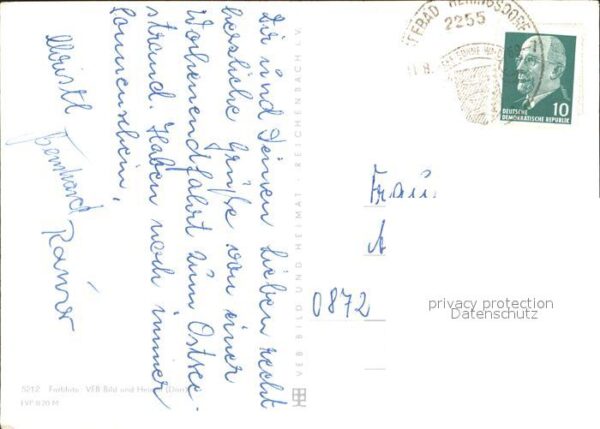 Dir und Deinen Lieben recht
herzliche Grüße von einer
Wochenendfahrt zum Ostsee-
strand. Haben noch immer
Sonnenschein.
Christl
Bernhard
Rainer
SEEBAD HERINGSDORF
2255
10
DEUTSCHE
DEMOKRATISCHE REPUBLIK
Frau
A
0872
privacy protection
Datenschutz
VEB BILD UND HEIMAT · REICHENBACH I. V.
5212 Farbfoto: VEB Bild und Heimat
EVP 0,20 M